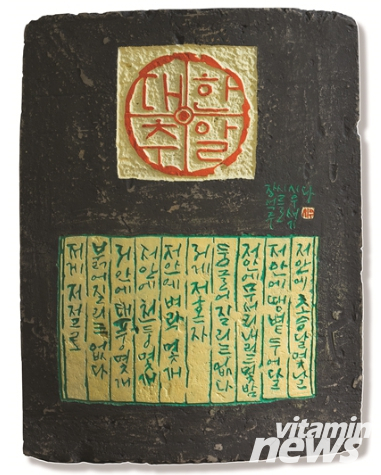 대추
한알
장석주
시를
저게 저절로
붉어질리는 없다
저안에 태풍 몇개
저안에 천둥 몇개
저안에 벼락 몇개
저게 저혼자
둥글어질리는없다
저안에무서리내리는몇밤
저안에땡볕두어달
저안에초승달몇낱
vitamin
news